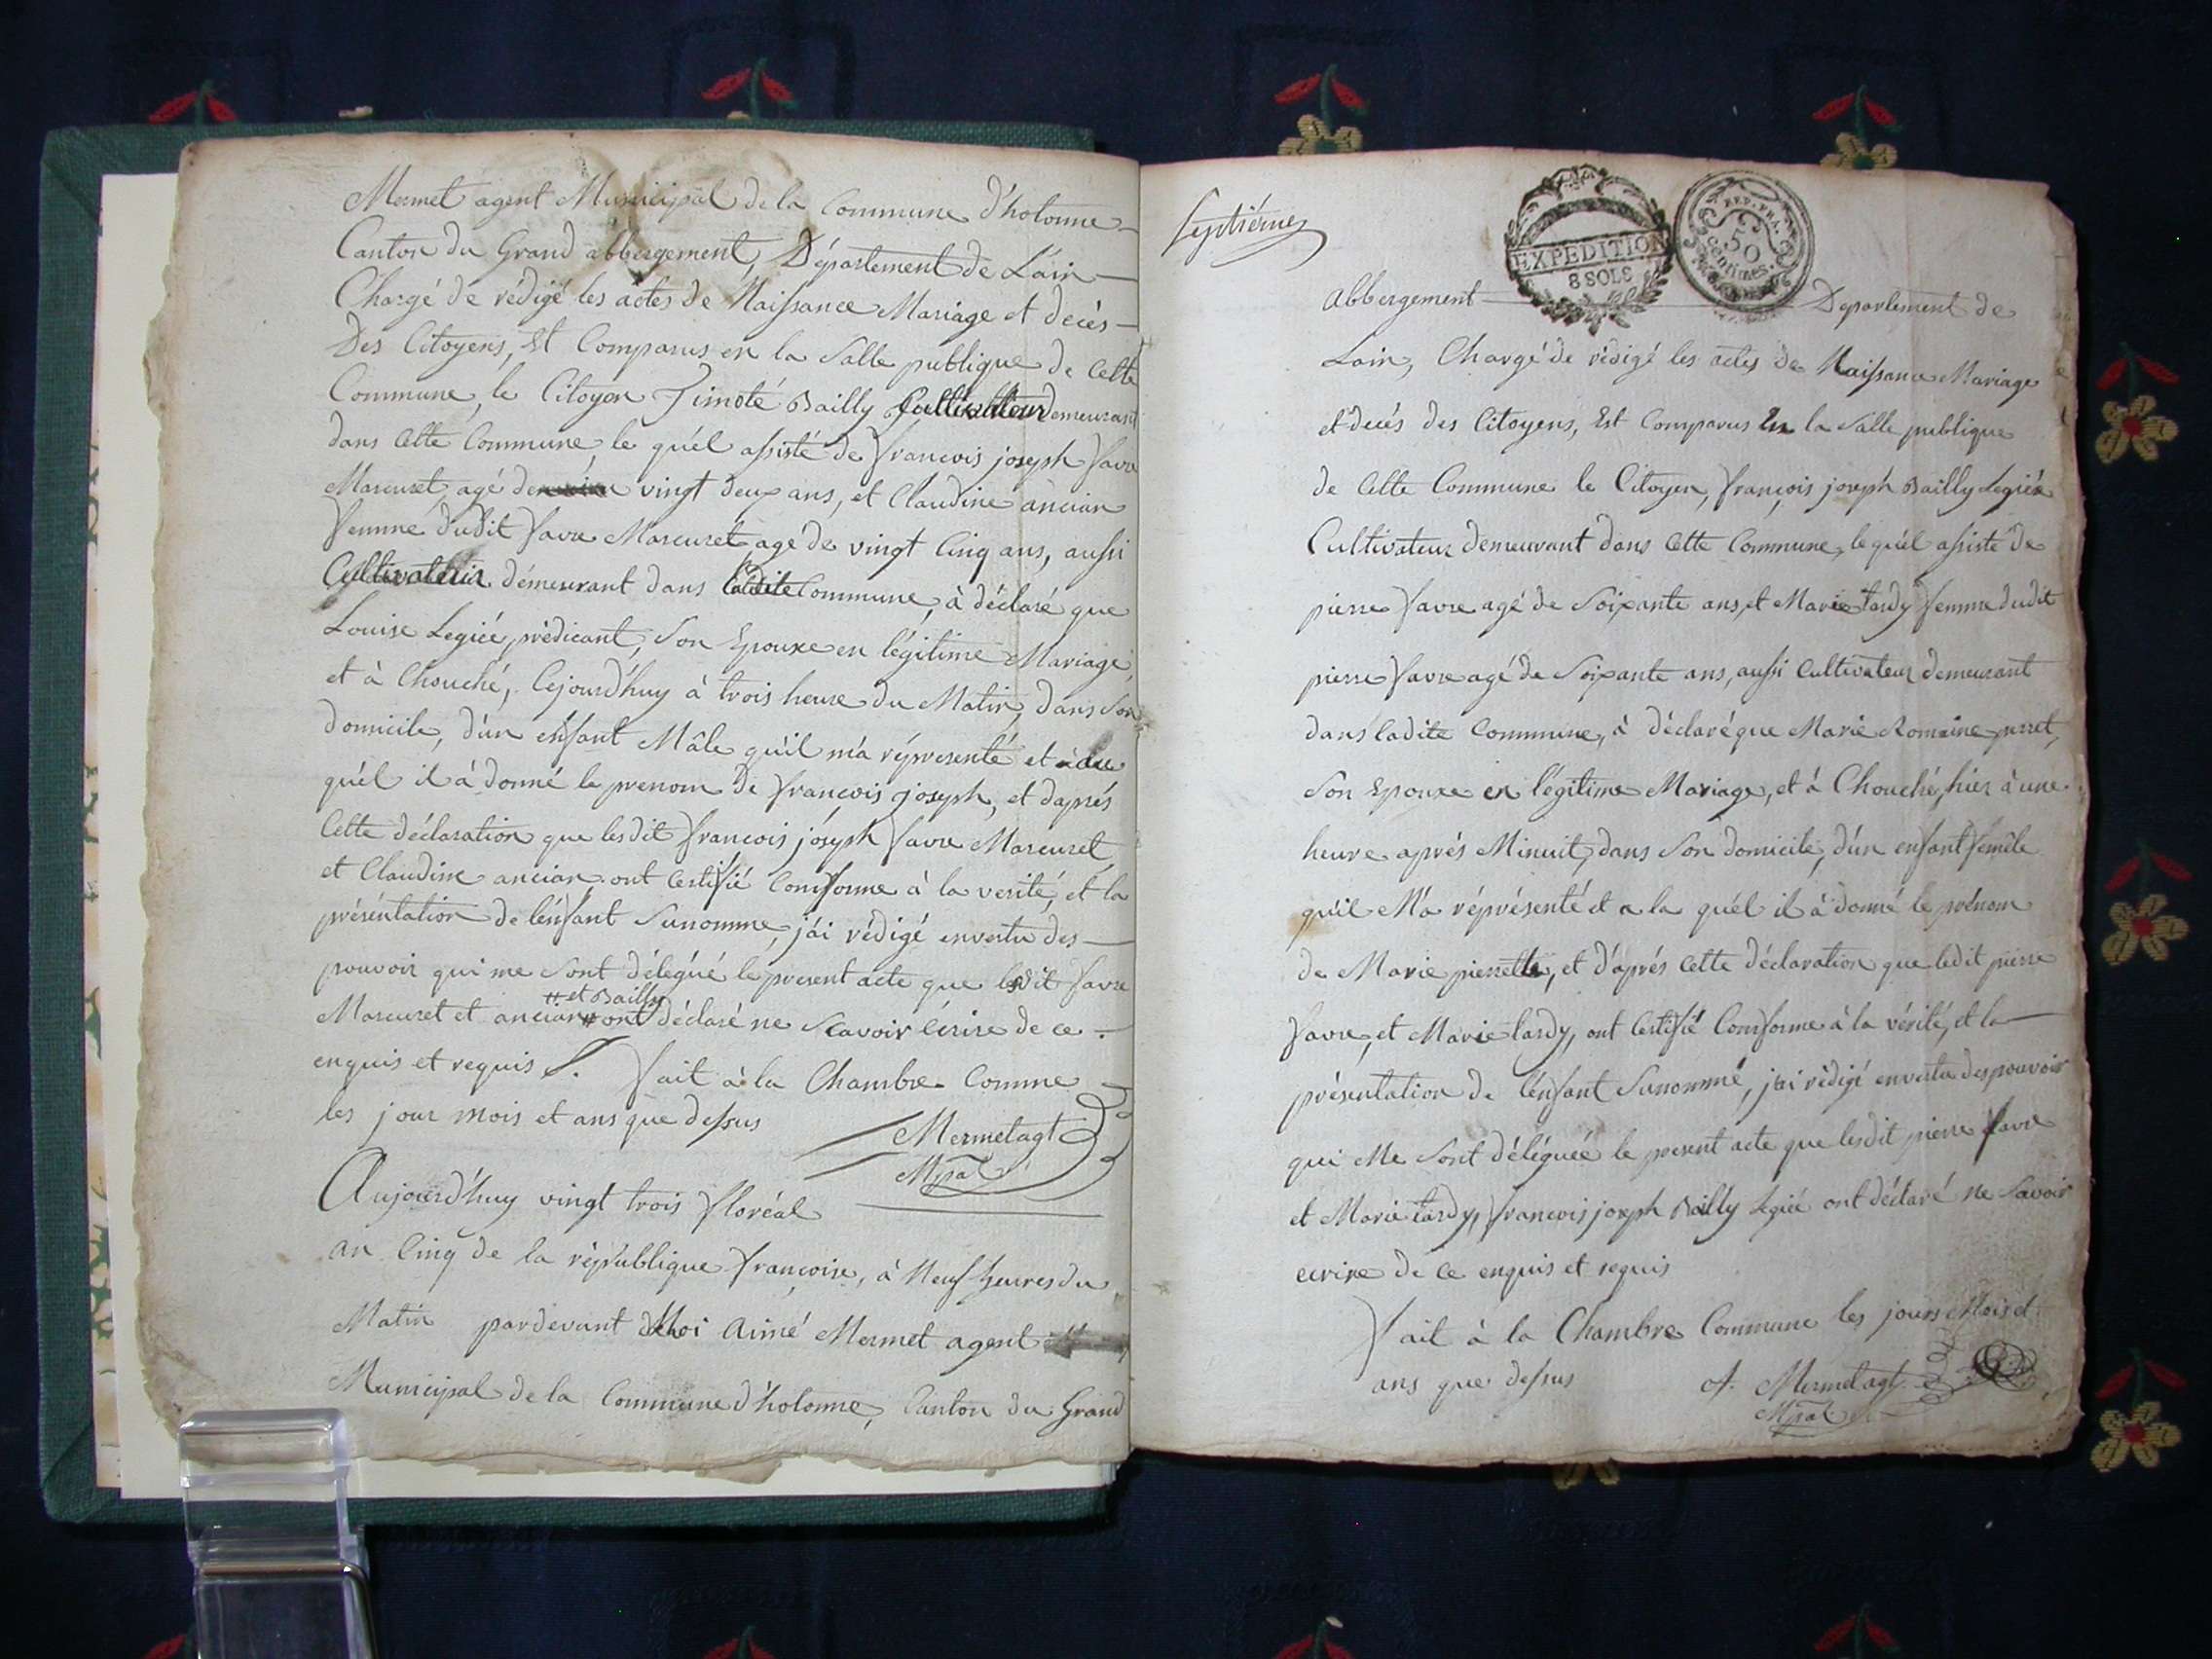 Mermet agent Municipal de la Commune d'holonne
Canton du Grand abbergement, Département de Lain
Chargé de rédigé les actes de Naissance Mariage et décès
Des Citoyens, Est Comparus en la Salle publique de Cette
Commune, le Citoyen Timoté Bailly Cultivateur demeurant
dans Cette Commune, le quél assisté de françois joseph favre
Marcuret, agé de vingt deux ans, et Claudine ancian
femme dudit favre Marcuret agé de vingt Cinq ans, aussi
Cultivateur démeurant dans ladite Commune, à déclaré que
Louise Legiée prédicant, Son Epouxe en légitime Mariage,
et à Chouché, Cejourd'huy à trois heure du Matin, dans Son
domicile, d'un enfant Mâle qu'il m'a répresenté et au
quél il à donné le prenom de françois joseph, et daprés
Cette déclaration que lesdit françois jóseph favre Marcuret
et Claudine ancian ont Certifié Comforme à la verité, et la
présentation de l'énfant Sunomme, j'ai rédigé envertu des
pouvoir qui me Sont délegué le present acte que lesdit favre
Marcuret et ancian # ont déclaré ne Scavoir Cérire de ce
# et Bailly
enquis et requis. fait à la Chambre Comme
les jour mois et ans que dessus
Mermet agt
Mpal
Aujourd'huy vingt trois floréal
an Cinq de la république françoise, à Neuf heures du
Matin pardevant Moi Aimé Mermet agent
Municipal de la Commune d'holonne, Canton du Grand
Septiéme
EXPEDITION
8 SOLS
REP. FRA.
50
centimes.
abbergement Departement de
Lain, Chargé de rédigé les actes de Naissance Mariage
et decés des Citoyens, Est Comparus En la Salle publique
de Cette Commune le Citoyen, françois joseph Bailly Legiée
Cultivateur demeurant dans Cette Commune, le quél assisté de
pierre favre agé de Soixante ans, et Marie tardy femme dudit
pierre favre agé de Soixante ans, aussi Cultivateur demeurant
dans ladite Commune, à déclaré que Marie Romaine perret,
Son Epouxe en légitime Mariage, et à Chouché, hier à une
heure aprés Minuit, dans Son domicile, d'ún enfant femêle
qu'il M'a répresenté et a la quél il à donné le prénom
de Marie pierrette, et d'aprés Cette déclaration que ledit pierre
favre, et Marie tardy, ont Certifié Comforme à la vérité, et la
présentation de l'énfant Sunommé, j'ai rédigé envertu des pouvoir
qui Me Sont déléguée le present acte que lesdit pierre favre
et Marie tardy, françois joseph Bailly Legiée ont déclaré ne Savoir
ecrire de ce enquis et requis
fait à la Chambre Commune les jours Mois et
ans que dessus A. Mermet agt
Mpal